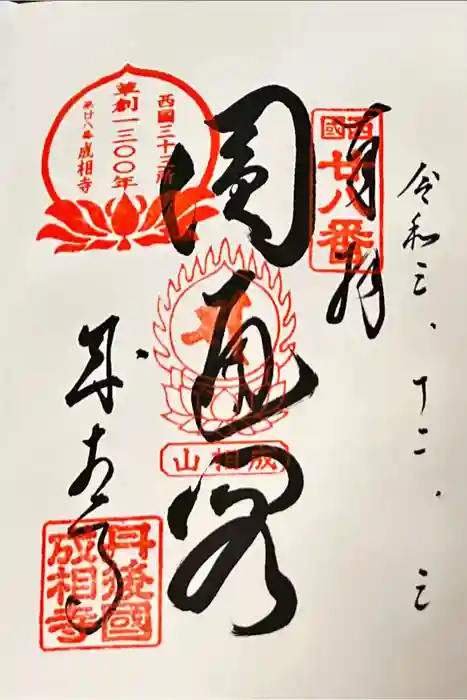 令和三、十二、三
奉拝
西國
廿八番
圓通閣
成相山
西国三十三所
草創一三〇〇年
第廿八番 成相寺
成相寺
丹後國
成相寺